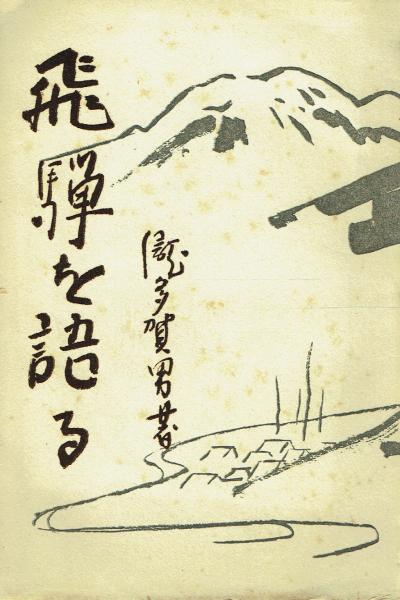 飛騨を語る
瀧多賀男著